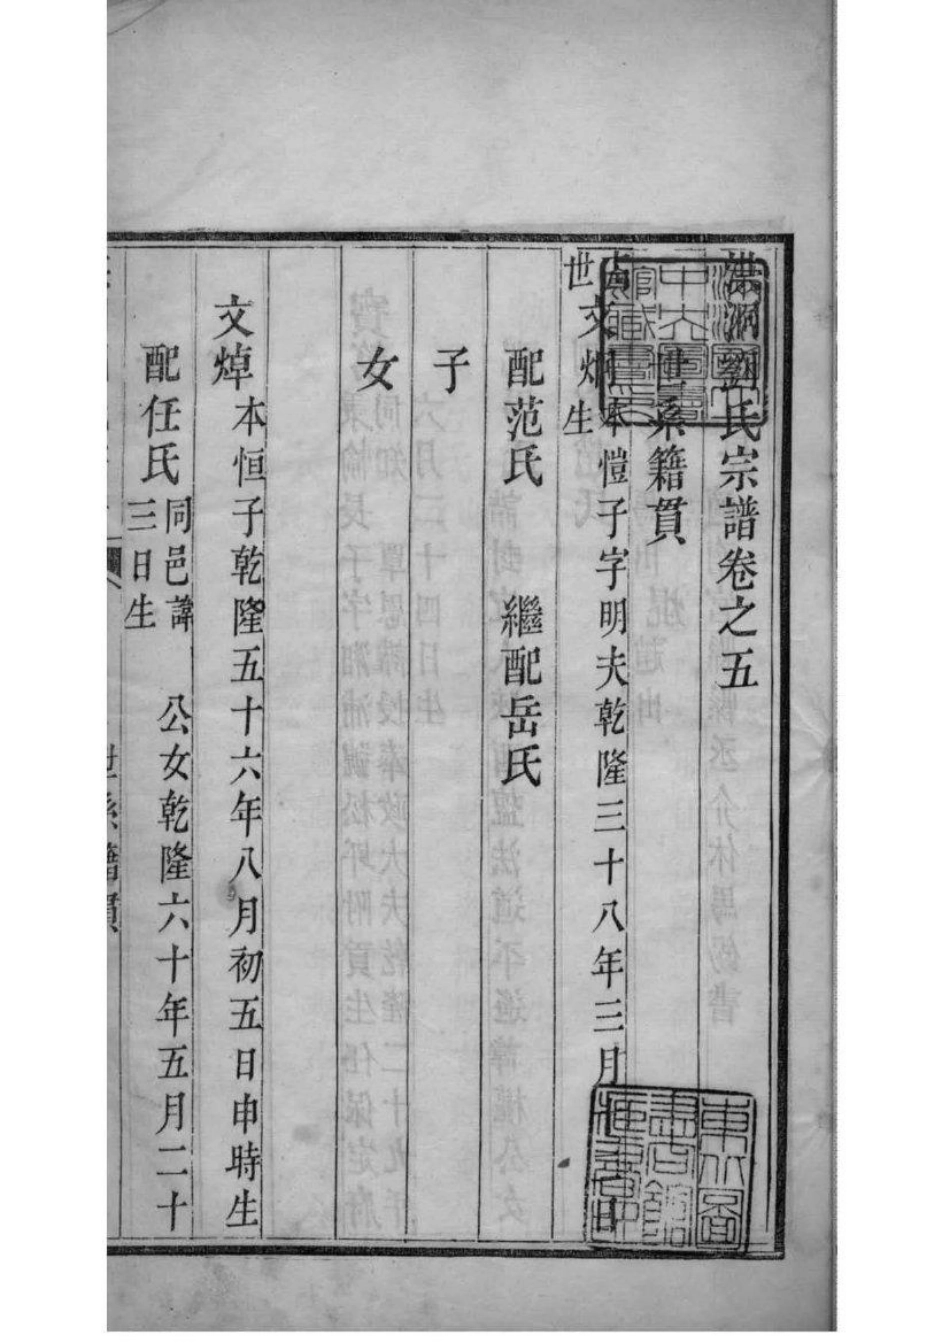 洪洞劉氏宗譜卷之五
世系籍貫
世
文炳本愷子字明夫乾隆三十八年三月 日
生
配范氏 繼配岳氏
子
女
文焯本恒子乾隆五十六年八月初五日申時生
配任氏同邑諱 公女乾隆六十年五月二十
三日生
世系籍貫